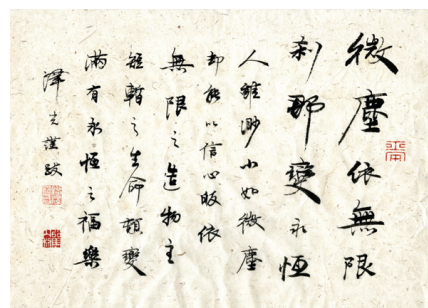 微塵依無限
刹那變永恒
人雖渺小如微塵
却能以信心皈依
無限之造物主
短暫之生命頓變
滿有永恒之福樂
澤光謹跋